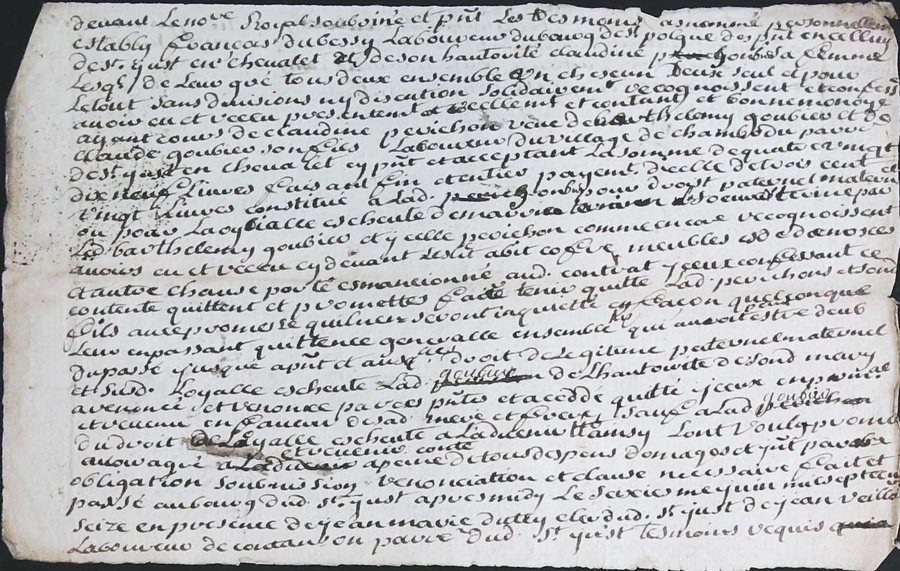 devant Le nore Royal soubsiné et pnt Les tesmoins a sa nomme personnellem
estably francois dubessy Laboureur du bourg de st polque de pnt en celluy
de st just en chevalet et de son hautorité claudine goubier sa femme
Lesqs de Leur gré tous deux ensemble un chescun deux seul et pour
Le tout sans divisions ny discution solidairemt recognoissent et confess
avoir eu et receu presentemt et reellemt et contant et bonne monoye
ayant cours de claudine perichon veuve de barthelemy goubier et de
claude goubier son fils Laboureur du village de chambodu parr
de st just en chevalet cy pnt et acceptant La somme de quatre vingt
dix neuf Livres faisant fin et entier payemt dicelle de trois cent
vingt Livres constitué a Lad. goubier pour droit paternel maternel
ou pour Loyalle escheute de marie et par
Led barthelemy goubier et ycelle perichon comme encore recognoissent
avoir eu et receu cy devant Lesd abit cofre meubles et denosces
et autre chause porté es mansionné aud. contrat yceux confessant ce
contente quittent et promettes faire tenir quitte Lad. perichons et sond
fils avec promesse quil nen seront inquietté en facon quelconque
Leur en passant quittence generalle ensemble qui auroit estre deub
du passé jusque a pnt et aux droit de Legitime paternel maternel
et susd. Loyalle escheute Lad goubier de Lhautorité de sond mary
a renoncé et renonce par ces pntes et a cedde quitté yceux en
et revenu en faveur de sad. mere et frere sauf a Lad goubier
du droit de Loyalle escheute a La ainsy Lont voulu promis
avoir agré a peine de tous despens domages et jnt par
obligation soubmission renonciation et clause necessaire fait et
passé au bourg dud. st just apres midy Le seziesme juin mil sept cen
seize en presence de jean marie dud. st just de jean
Laboureur de en parre dud. st just tesmoins requis